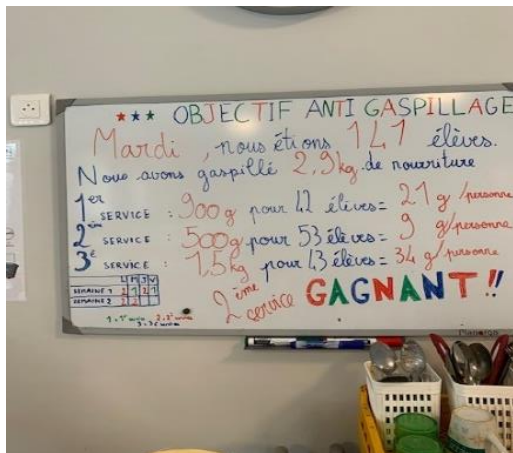 OBJECTIF ANTI GASPILLAGE
Mardi, nous étions 141 élèves.
Nous avons gaspillé 2,9kg de nourriture
1er SERVICE : 900g pour 42 élèves = 21 g /personne
2ème SERVICE : 500g pour 53 élèves = 9 g/personne
3è SERVICE : 1,5kg pour 43 élèves = 34 g/personne
L M J V
SEMAINE 1 2 1 2 1
SEMAINE 2 2 2
2ème service GAGNANT !!